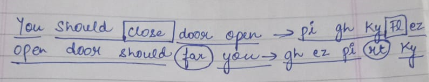 You should close door open → pi gh ky Fl ez
open door should far you → gh ez pi rt ky